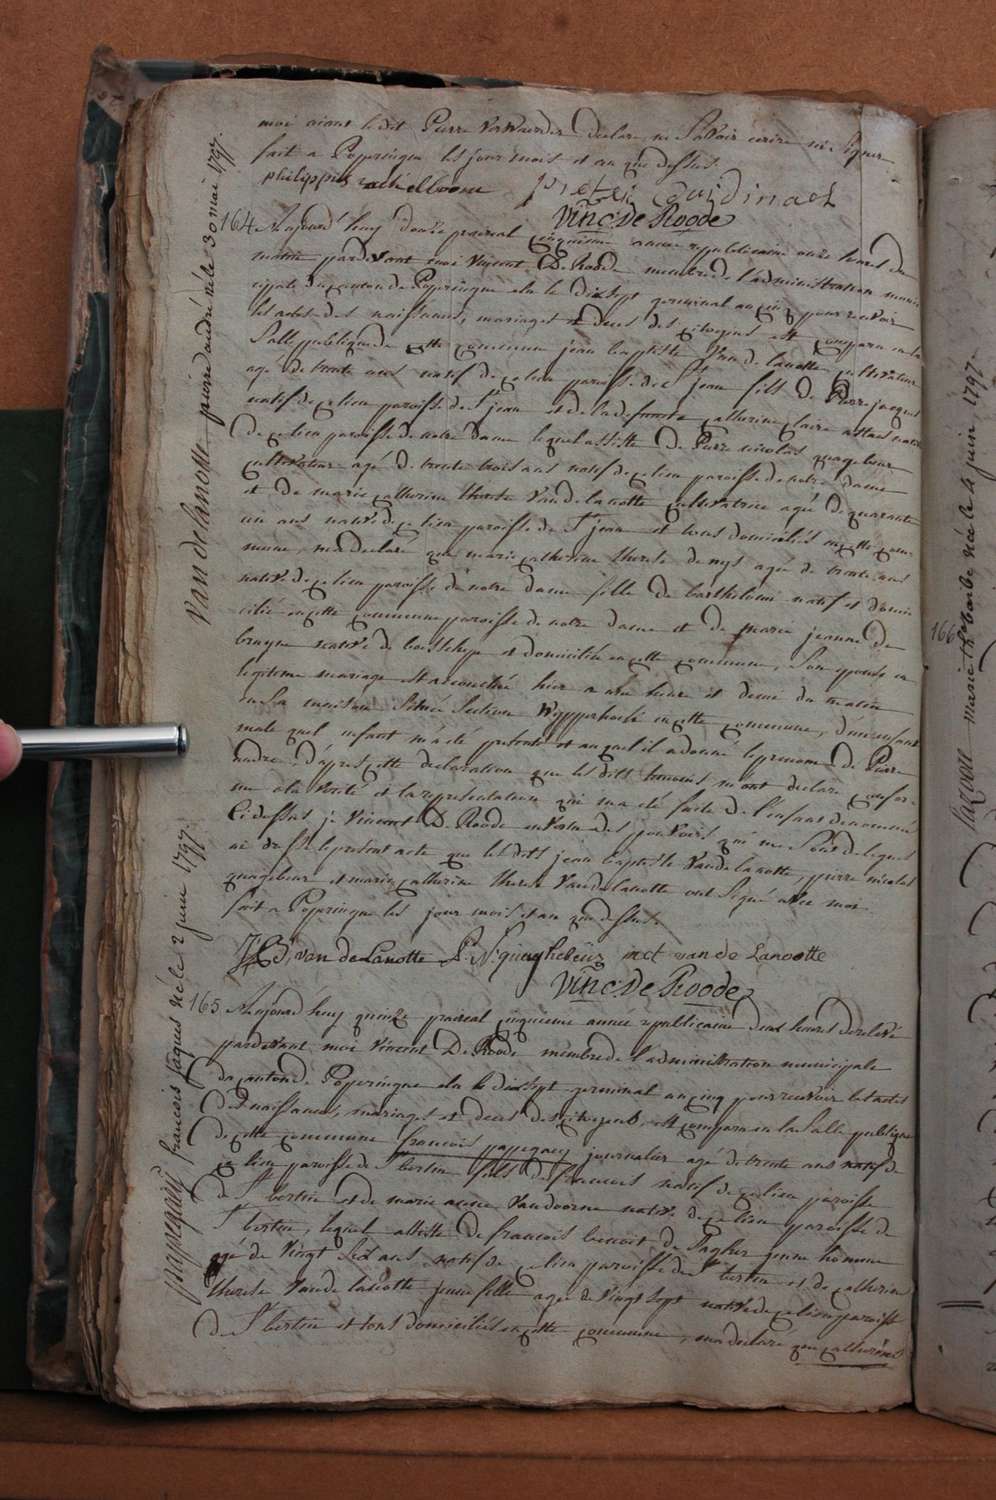 moi aiant ledit Pierre Verwaerde declare ne Savoir ecrire ni Signer
fait a Poperingue les jour mois et an que dessus.
philippus
pieter
Vinc. De Roode
164 Aujourd'huy douze prairial cinquieme année republicaine onze heures du
matin pardevant moi Vincent De Roode membre de l'administration muni
cipale du canton de Poperingue elu le dix sept germinal an cinq pour recevoir
les actes des naissances, mariages et deces des citoyens est comparu en la
Salle publique de cette commune jean baptiste Van de lanotte cultivateur
agé de trente ans natif de ce lieu paroisse de St jean fils de Pierre jacques
natif de ce lieu paroisse de St jean et de la defunte catherine claire native
de ce lieu paroisse de notre dame lequel assisté de Pierre nicolas quagebeur
cultivateur agé de trente trois ans natif de ce lieu paroisse de notre dame
et de marie catherine therese Van de lanotte cultivatrice agée de quarante
un ans native de ce lieu paroisse de St jean et tous domiciliés en cette com
mune, m'a declaré que marie catherine therese de nys agée de trente ans
native de ce lieu paroisse de notre dame fille de barthelomé natif et domi
cilié en cette commune paroisse de notre dame et de marie jeanne De
bruyne native de boesschepe et domiciliée en cette commune, Son epouse en
legitime mariage est accouchée hier a une heure et demie du matin
en Sa maison Située Section en cette commune, d'un enfant
male quel enfant m'a été presenté et auquel il a donné le prenom de Pierre
André, d'après cette declaration que les dits temoins m'ont declaré confor
me a la verité et la representation qui m'a été faite de l'enfant denommé
Ci dessus je Vincent De Roode en vertu des pouvoirs qui me Sont delegués
ai dressé le present acte que les dits jean baptiste Van de lanotte, pierre nicolas
quagebeur et marie catherine therese Van de lanotte ont Signé avec moi
fait a Poperingue les jour mois et an que dessus.
J:B: van de Lanotte P: N: quaghebeur mct van de Lanotte
Vinc. De Roode
165 Aujourd'huy quinze prairial cinquieme année republicaine deux heures de relevé
pardevant moi Vincent De Roode membre de l'administration municipale
du canton de Poperingue elu le dix sept germinal an cinq pour recevoir les actes
des naissances, mariages et deces des citoyens, est comparu en la Salle publique
de cette commune francois papegaey journalier agé de trente ans natif de
ce lieu paroisse de St bertin fils de francois natif de ce lieu paroisse
de St bertin et de marie Vandoorne native de ce lieu paroisse de
St bertin, lequel assisté de francois benoit de jeune homme
agé de Vingt Six ans natif de ce lieu paroisse de St bertin et de catherine
therese Van de lanotte jeune fille agée de Vingt sept native de ce lieu paroisse
de St bertin et tous domiciliés en cette commune, m'a declaré que catherine
Van de lanotte pierre andré né le 30 mai 1797.
papegaeij francois jaques né le 2 juin 1797.
166
marie th: barbe née le 4 juin 1797.